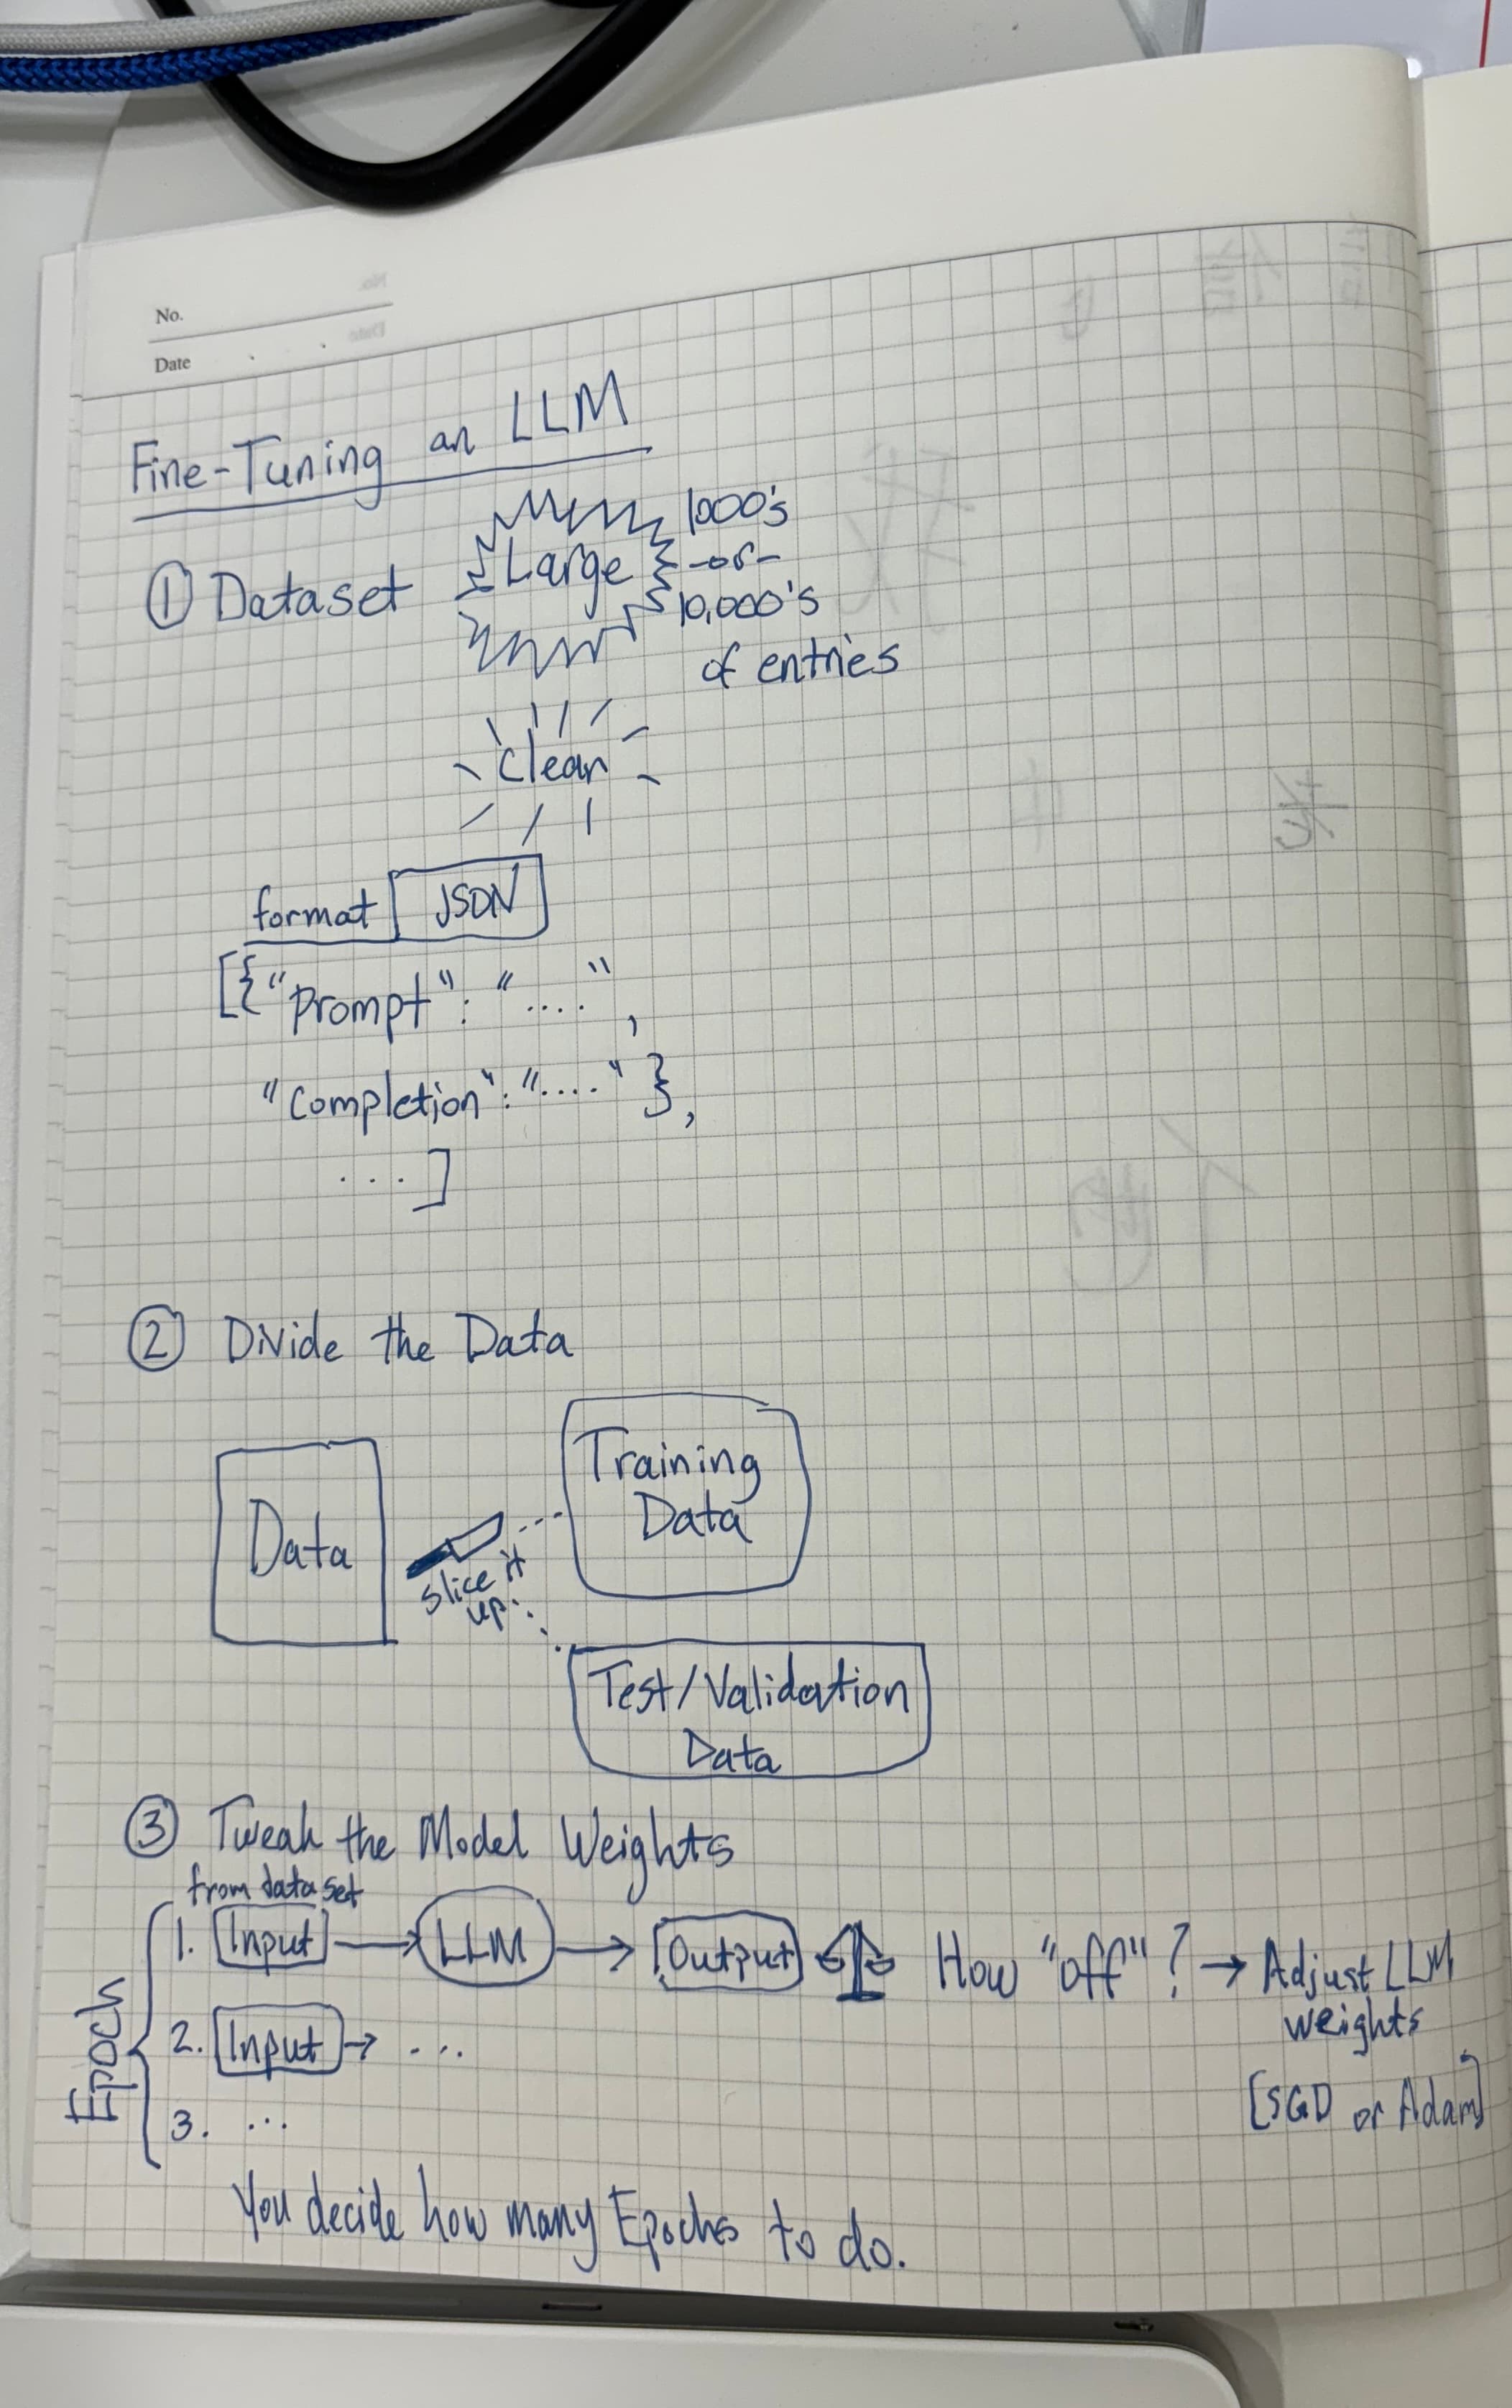 No.
Date
Fine-Tuning an LLM
① Dataset
Large
1000's
-or-
10,000's
of entries
clean
format JSON
[{"prompt": "....",
"completion": "...." },
...]
② Divide the Data
Data
slice it
up
Training
Data
Test/Validation
Data
③ Tweak the Model Weights
from dataset
Epoch
1. Input → LLM → Output How "off"? → Adjust LLM
weights
[SGD or Adam]
2. Input → ...
3. ...
You decide how many Epochs to do.